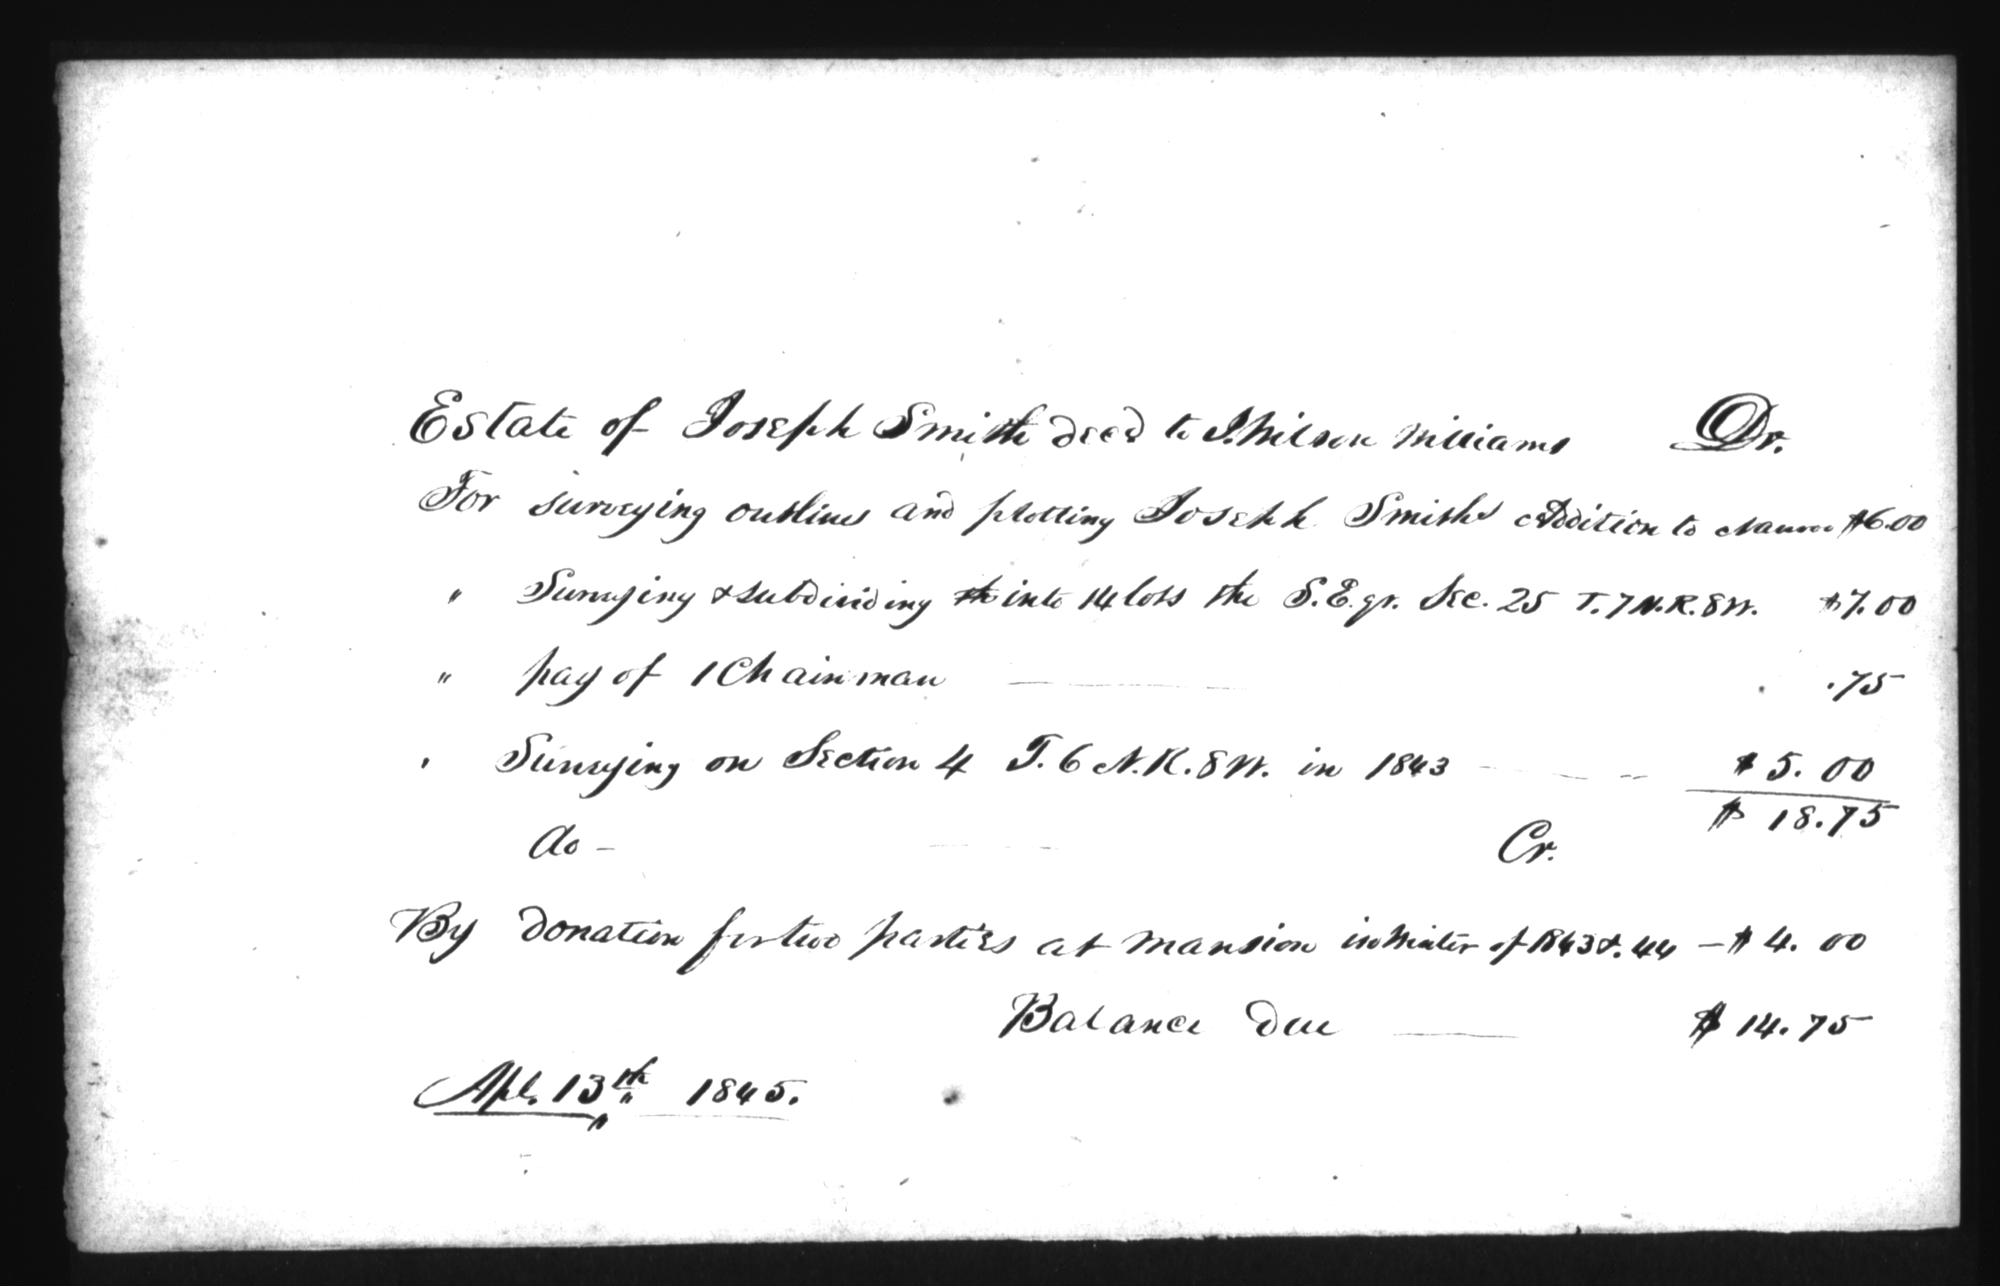 Estate of Joseph Smith decd to J. Wilson Williams Dr.
For surveying outlines and plotting Joseph Smiths Addition to Nauvoo $6.00
" Surveying & subdividing th into 14 lots the S.E. qr. Sec. 25 T. 7 N. R. 8 W. $7.00
" pay of 1 Chainman — .75
" Surveying on Section 4 T. 6 N. R. 8 W. in 1843 - - - - $5.00
$18.75
do - Cr.
By donation for two parties at mansion in Winter of 1843 & 44 — $4.00
Balance due — $14.75
Apl. 13th 1845.